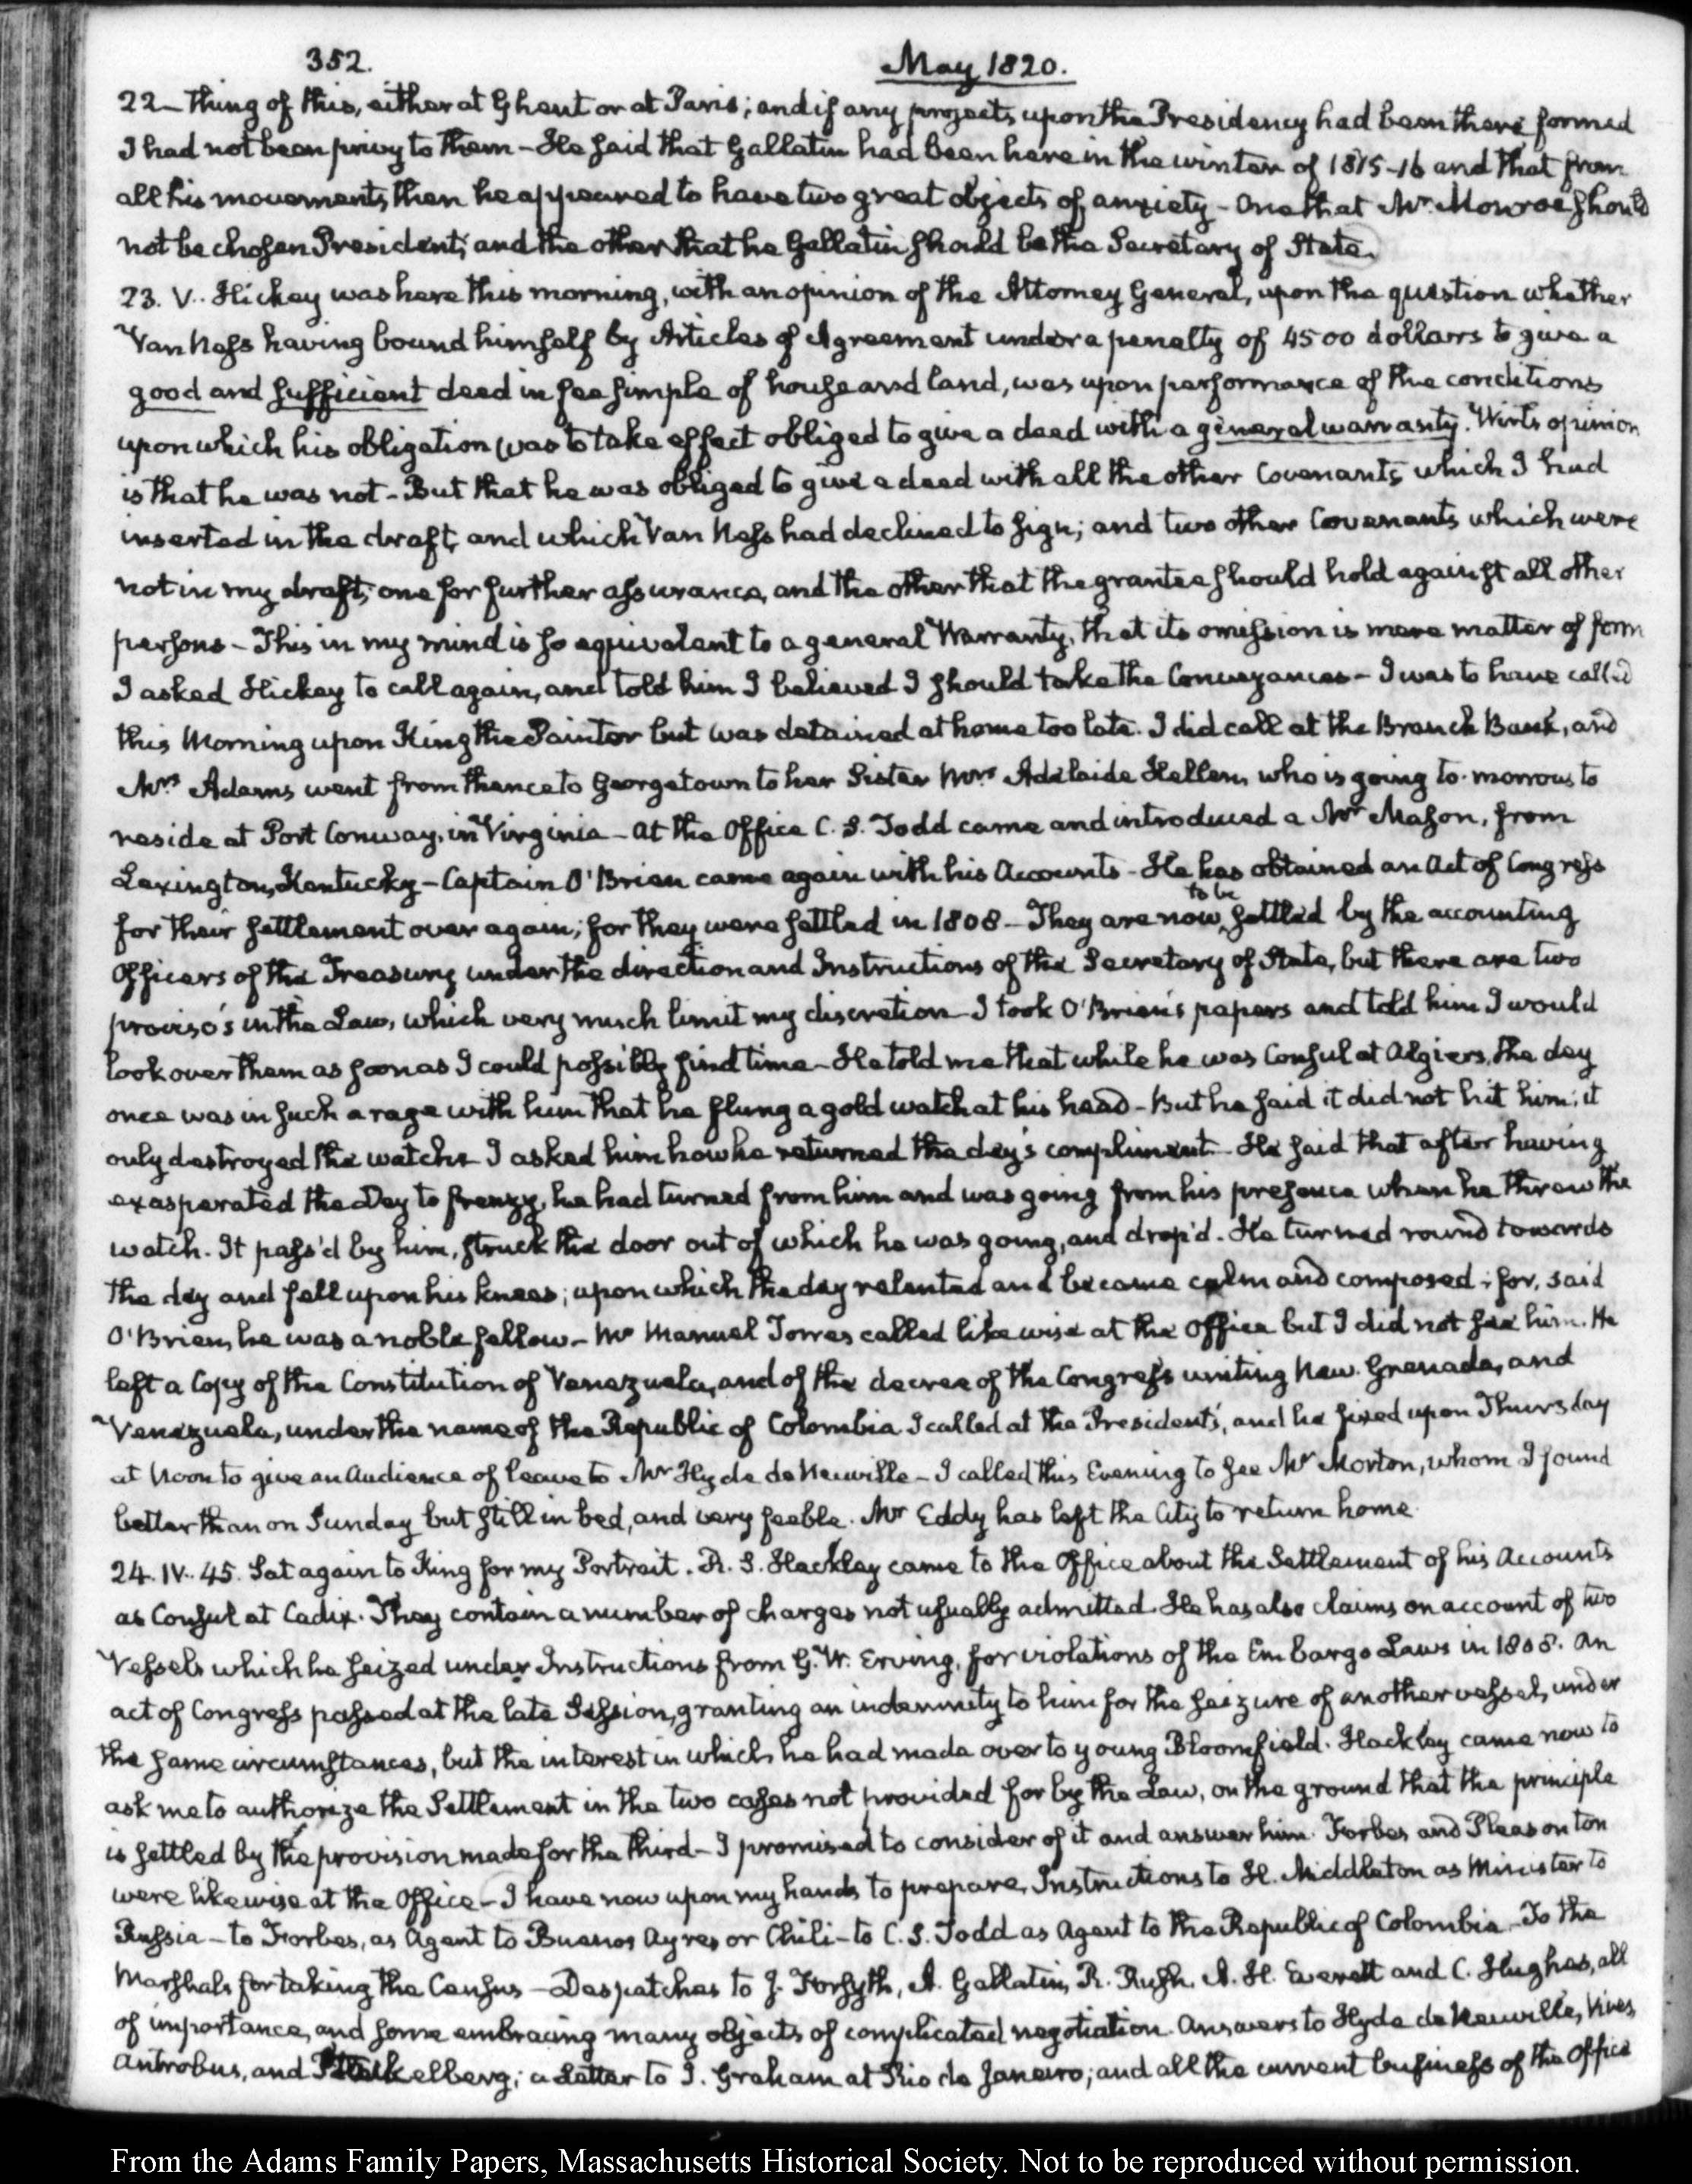 352.
May 1820.
22 – thing of this, either at Ghent or at Paris; and if any projects upon the Presidency had been there formed
I had not been privy to them – He said that Gallatin had been here in the winter of 1815-16 and that from
all his movements then he appeared to have two great objects of anxiety – One that Mr. Monroe should
not be chosen President, and the other that he Gallatin should be the Secretary of State.
23. V.. Hickey was here this morning, with an opinion of the Attorney General, upon the question whether
Van Ness having bound himself by Articles of Agreement under a penalty of 4500 dollars to give a
good and sufficient deed in fee simple of house and land, was upon performance of the conditions
upon which his obligation was to take effect obliged to give a deed with a general warranty. Wirt's opinion
is that he was not – But that he was obliged to give a deed with all the other Covenants, which I had
inserted in the draft, and which Van Ness had declined to sign; and two other Covenants which were
not in my draft; one for further assurance, and the other that the grantee should hold against all other
persons – This in my mind is so equivalent to a general Warranty, that its omission is mere matter of form
I asked Hickey to call again, and told him I believed I should take the Conveyances – I was to have called
this Morning upon King the Painter but was detained at home too late. I did call at the Branch Bank, and
Mrs Adams went from thence to Georgetown to her Sister Mrs Adelaide Hellen, who is going to-morrow to
reside at Port Conway, in Virginia – At the Office C. S. Todd came and introduced a Mr Mason, from
Lexington, Kentucky – Captain O'Brien came again with his Accounts – He has obtained an Act of Congress
for their settlement over again; for they were settled in 1808 – They are now to be settled by the accounting
Officers of the Treasury under the direction and Instructions of the Secretary of State, but there are two
proviso's in the Law, which very much limit my discretion – I took O'Brien's papers and told him I would
look over them as soon as I could possibly find time – He told me that while he was Consul at Algiers, the dey
once was in such a rage with him that he flung a gold watch at his head – But he said it did not hit him; it
only destroyed the watch – I asked him how he returned the dey's compliment – He said that after having
exasperated the Dey to frenzy, he had turned from him and was going from his presence when he threw the
watch. It pass'd by him, struck the door out of which he was going, and drop'd. He turned round towards
the dey and fell upon his knees; upon which the dey relented and became calm and composed; for, said
O'Brien, he was a noble fellow. – Mr Manuel Torres called likewise at the Office but I did not see him. He
left a Copy of the Constitution of Venezuela, and of the decree of the Congress uniting New Grenada, and
Venezuela, under the name of the Republic of Colombia. I called at the President's, and he fixed upon Thursday
at Noon to give an Audience of leave to Mr Hyde de Neuville – I called this Evening to see Mr Morton, whom I found
better than on Sunday but still in bed, and very feeble. Mr Eddy has left the City to return home
24. IV.. 45. Sat again to King for my Portrait. R. S. Hackley came to the Office about the Settlement of his Accounts
as Consul at Cadix. They contain a number of charges not usually admitted. He has also claims on account of two
Vessels which he seized under Instructions from G. W. Erving, for violations of the Embargo Laws in 1808. An
act of Congress passed at the late Session, granting an indemnity to him for the seizure of another vessel, under
the same circumstances, but the interest in which he had made over to young Bloomfield. Hackley came now to
ask me to authorize the Settlement in the two cases not provided for by the Law, on the ground that the principle
is settled by the provision made for the third – I promised to consider of it and answer him. Forbes and Pleasonton
were likewise at the Office – I have now upon my hands to prepare, Instructions to H. Middleton as Minister to
Russia – to Forbes, as Agent to Buenos Ayres or Chili – to C. S. Todd as Agent to the Republic of Colombia – To the
Marshals for taking the Census – Despatches to J. Forsyth, A. Gallatin, R. Rush, A. H. Everett and C. Hughes, all
of importance, and some embracing many objects of complicated negotiation. Answers to Hyde de Neuville, Vives,
Antrobus, and Stackelberg; a Letter to J. Graham at Rio de Janeiro; and all the current business of the Office
From the Adams Family Papers, Massachusetts Historical Society. Not to be reproduced without permission.